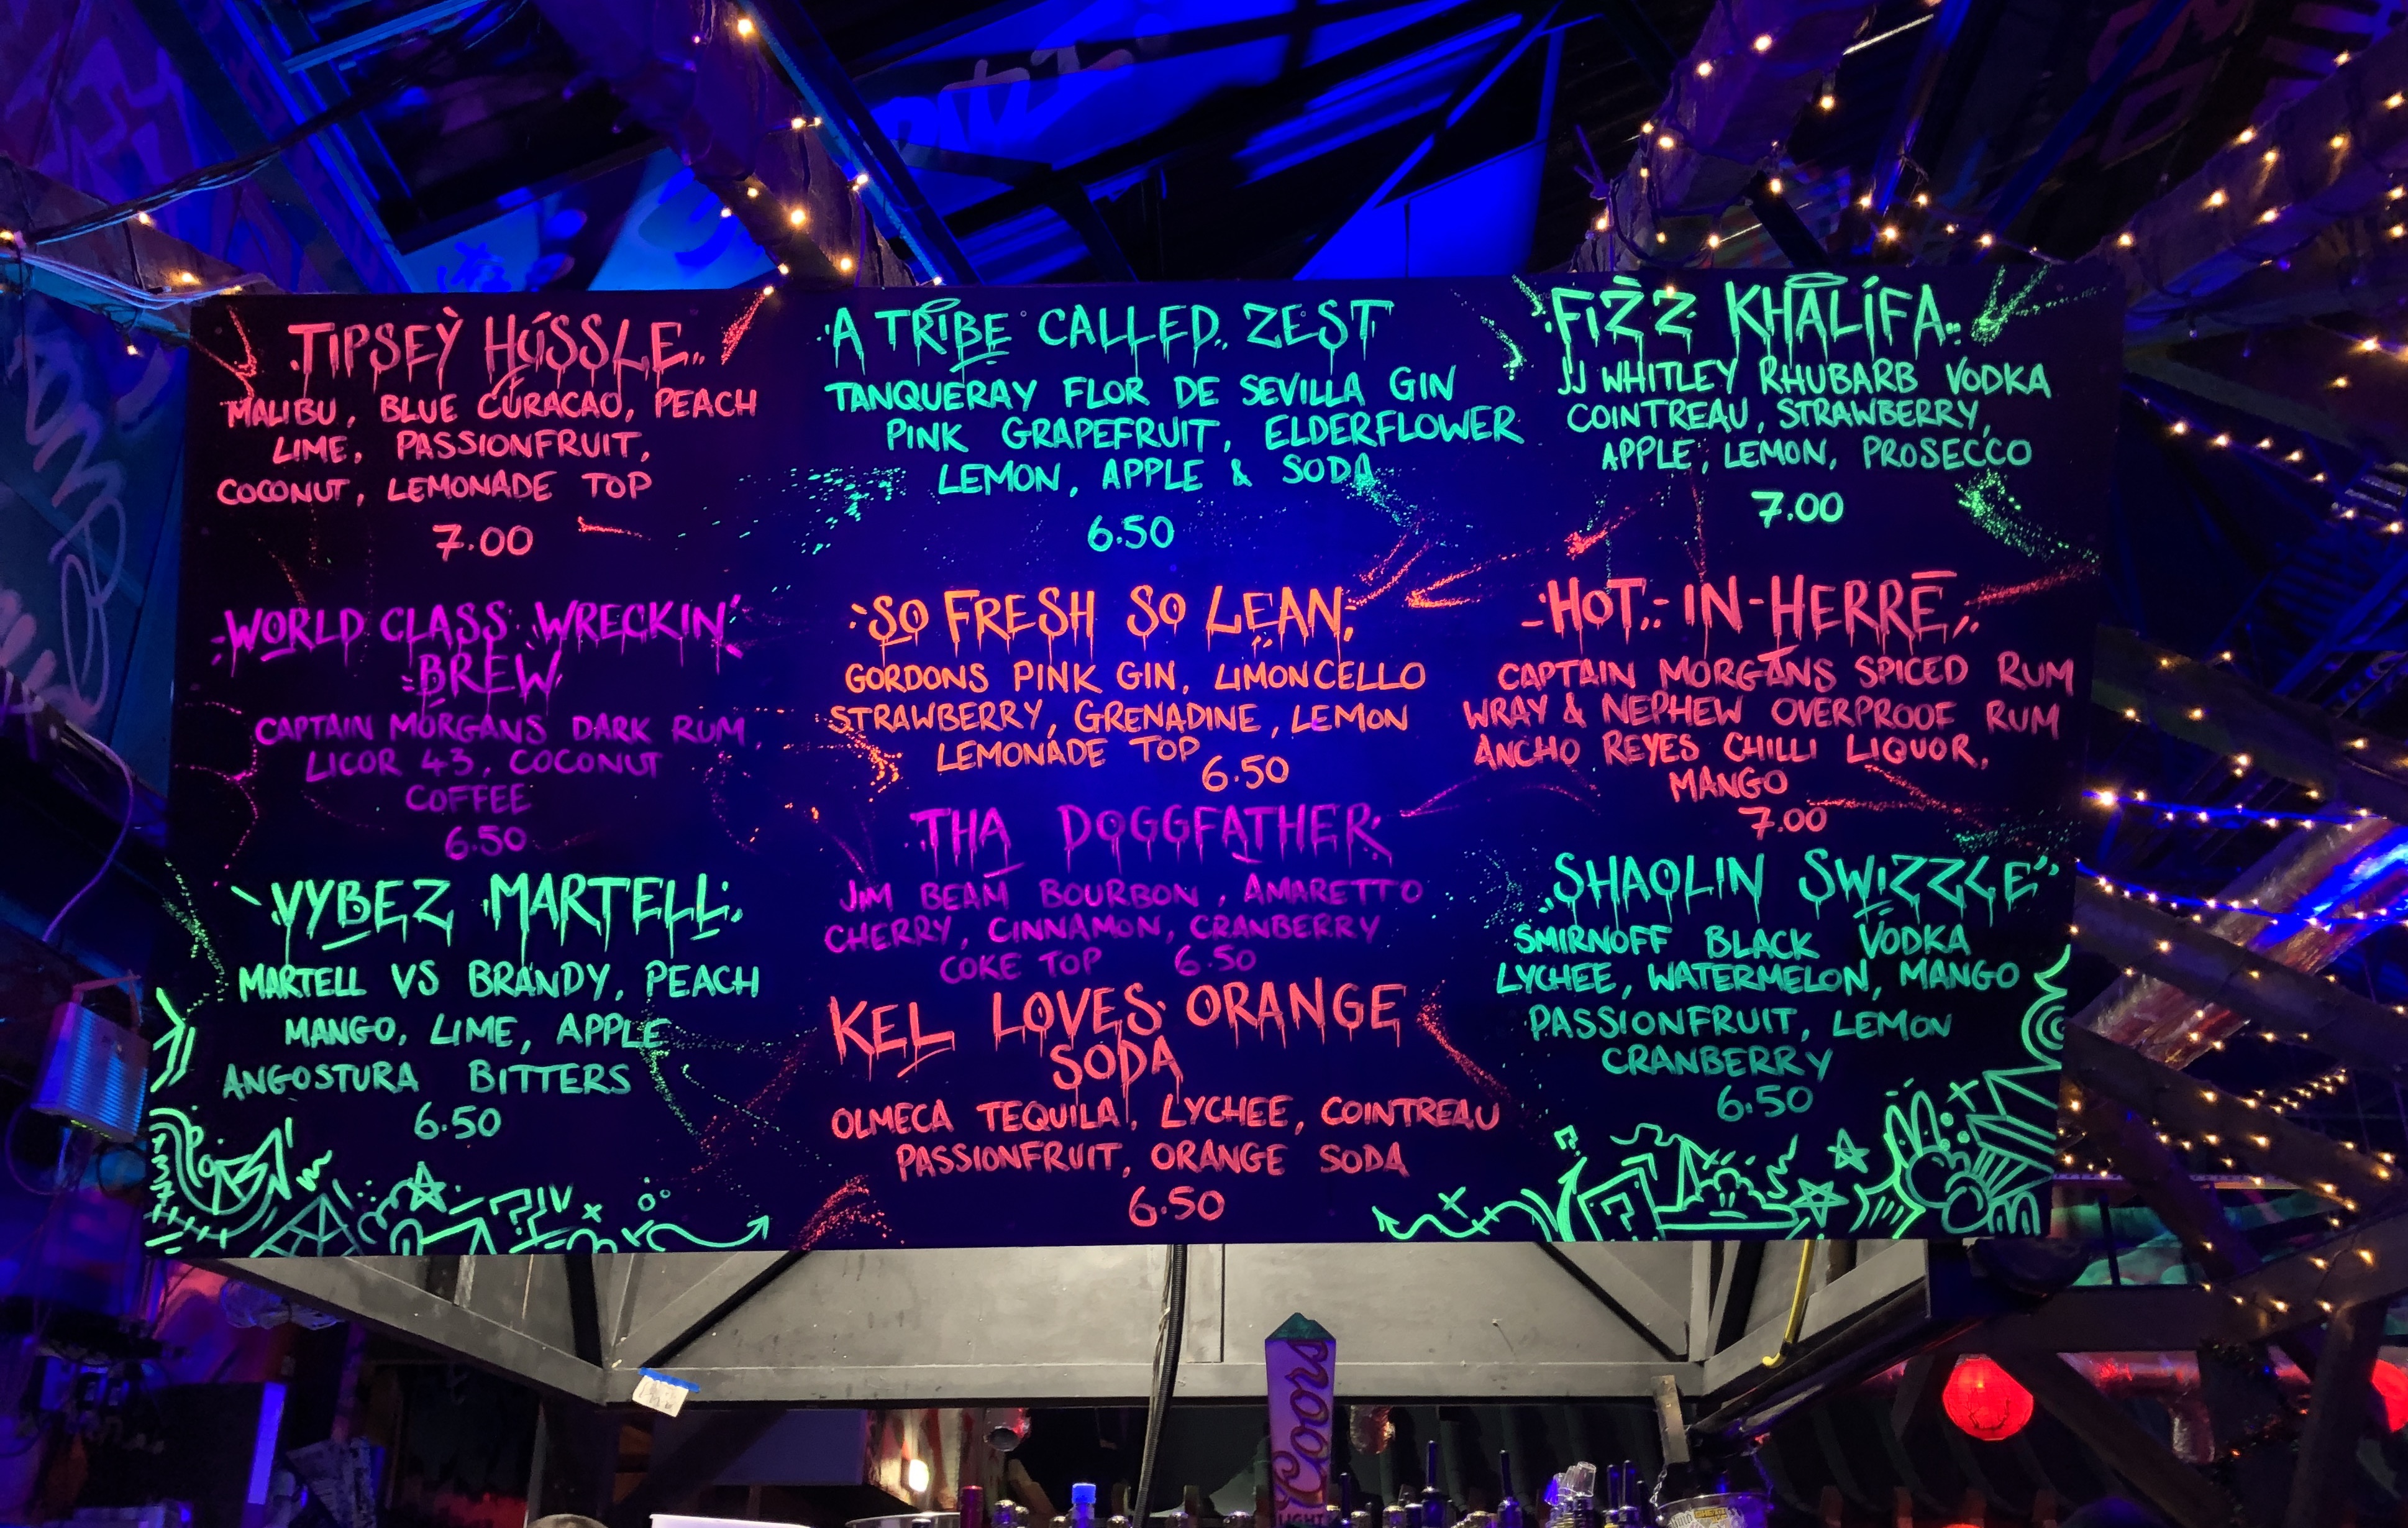 TIPSEY HUSSLE
MALIBU, BLUE CURACAO, PEACH
LIME, PASSIONFRUIT,
COCONUT, LEMONADE TOP
7.00
WORLD CLASS WRECKIN'
BREW
CAPTAIN MORGANS DARK RUM
LICOR 43, COCONUT
COFFEE
6.50
VYBEZ MARTELL
MARTELL VS BRANDY, PEACH
MANGO, LIME, APPLE
ANGOSTURA BITTERS
6.50
A TRIBE CALLED ZEST
TANQUERAY FLOR DE SEVILLA GIN
PINK GRAPEFRUIT, ELDERFLOWER
LEMON, APPLE & SODA
6.50
SO FRESH SO LEAN
GORDONS PINK GIN, LIMONCELLO
STRAWBERRY, GRENADINE, LEMON
LEMONADE TOP
6.50
THA DOGGFATHER
JIM BEAM BOURBON, AMARETTO
CHERRY, CINNAMON, CRANBERRY
COKE TOP 6.50
KEL LOVES ORANGE
SODA
OLMECA TEQUILA, LYCHEE, COINTREAU
PASSIONFRUIT, ORANGE SODA
6.50
FIZZ KHALIFA
JJ WHITLEY RHUBARB VODKA
COINTREAU, STRAWBERRY,
APPLE, LEMON, PROSECCO
7.00
HOT IN HERRE
CAPTAIN MORGANS SPICED RUM
WRAY & NEPHEW OVERPROOF RUM
ANCHO REYES CHILLI LIQUOR,
MANGO
7.00
SHAOLIN SWIZZLE
SMIRNOFF BLACK VODKA
LYCHEE, WATERMELON, MANGO
PASSIONFRUIT, LEMON
CRANBERRY
6.50
Coors
LIGHT